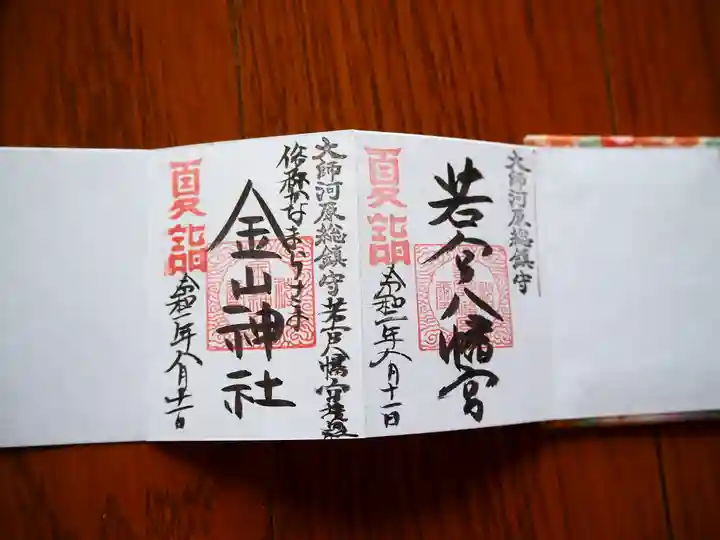 大師河原総鎮守
若宮八幡宮
夏詣
令和二年八月十一日
大師河原総鎮守 若宮八幡宮
俗称かなまらさま
金山神社
夏詣
令和二年八月十一日